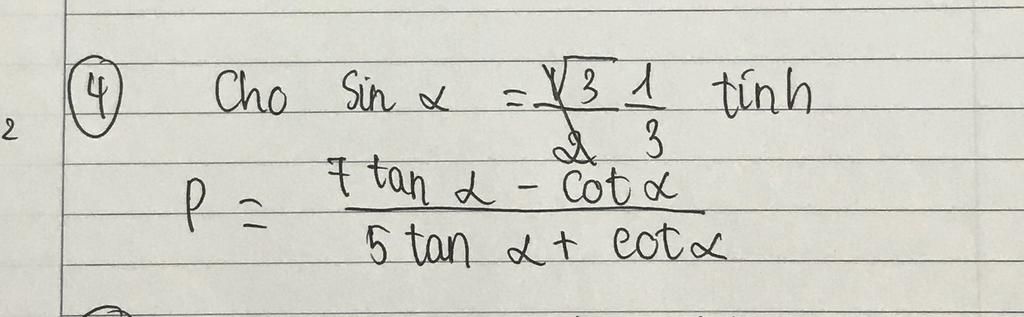 ④ Cho Sin α = √3/2 1/3 tính
P = (7 tan α - cot α)/(5 tan α + cot α)
2